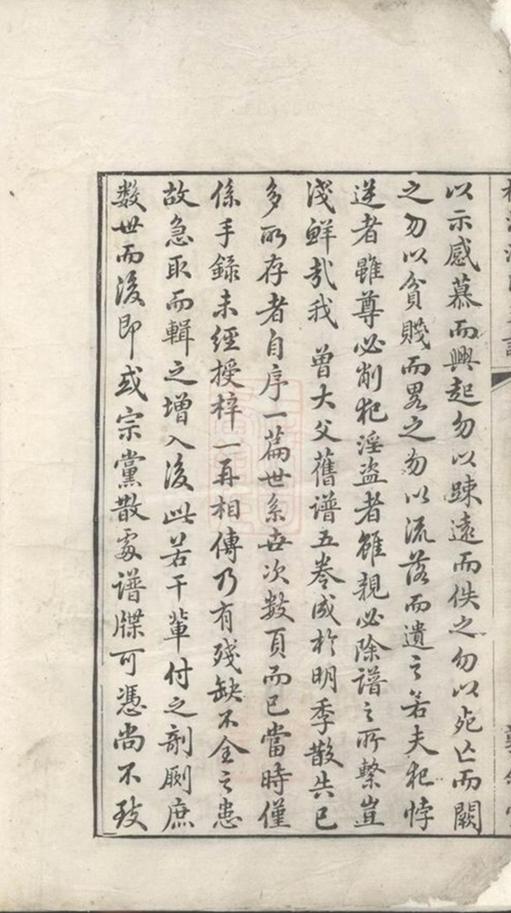 以示感慕而興起勿以踈遠而佚之勿以死亡而闕
之勿以貧賤而畧之勿以流落而遺之若夫犯悖
逆者雖尊必削犯淫盗者雖親必除譜之所繫豈
淺鮮哉我 曾大父舊譜五卷成於明季散失已
多所存者自序一篇世系世次數頁而已當時僅
係手錄未經授梓一再相傳乃有殘缺不全之患
故急取而輯之增入後此若干輩付之剞劂庶
数世而後即或宗黨散處譜牒可憑尚不致